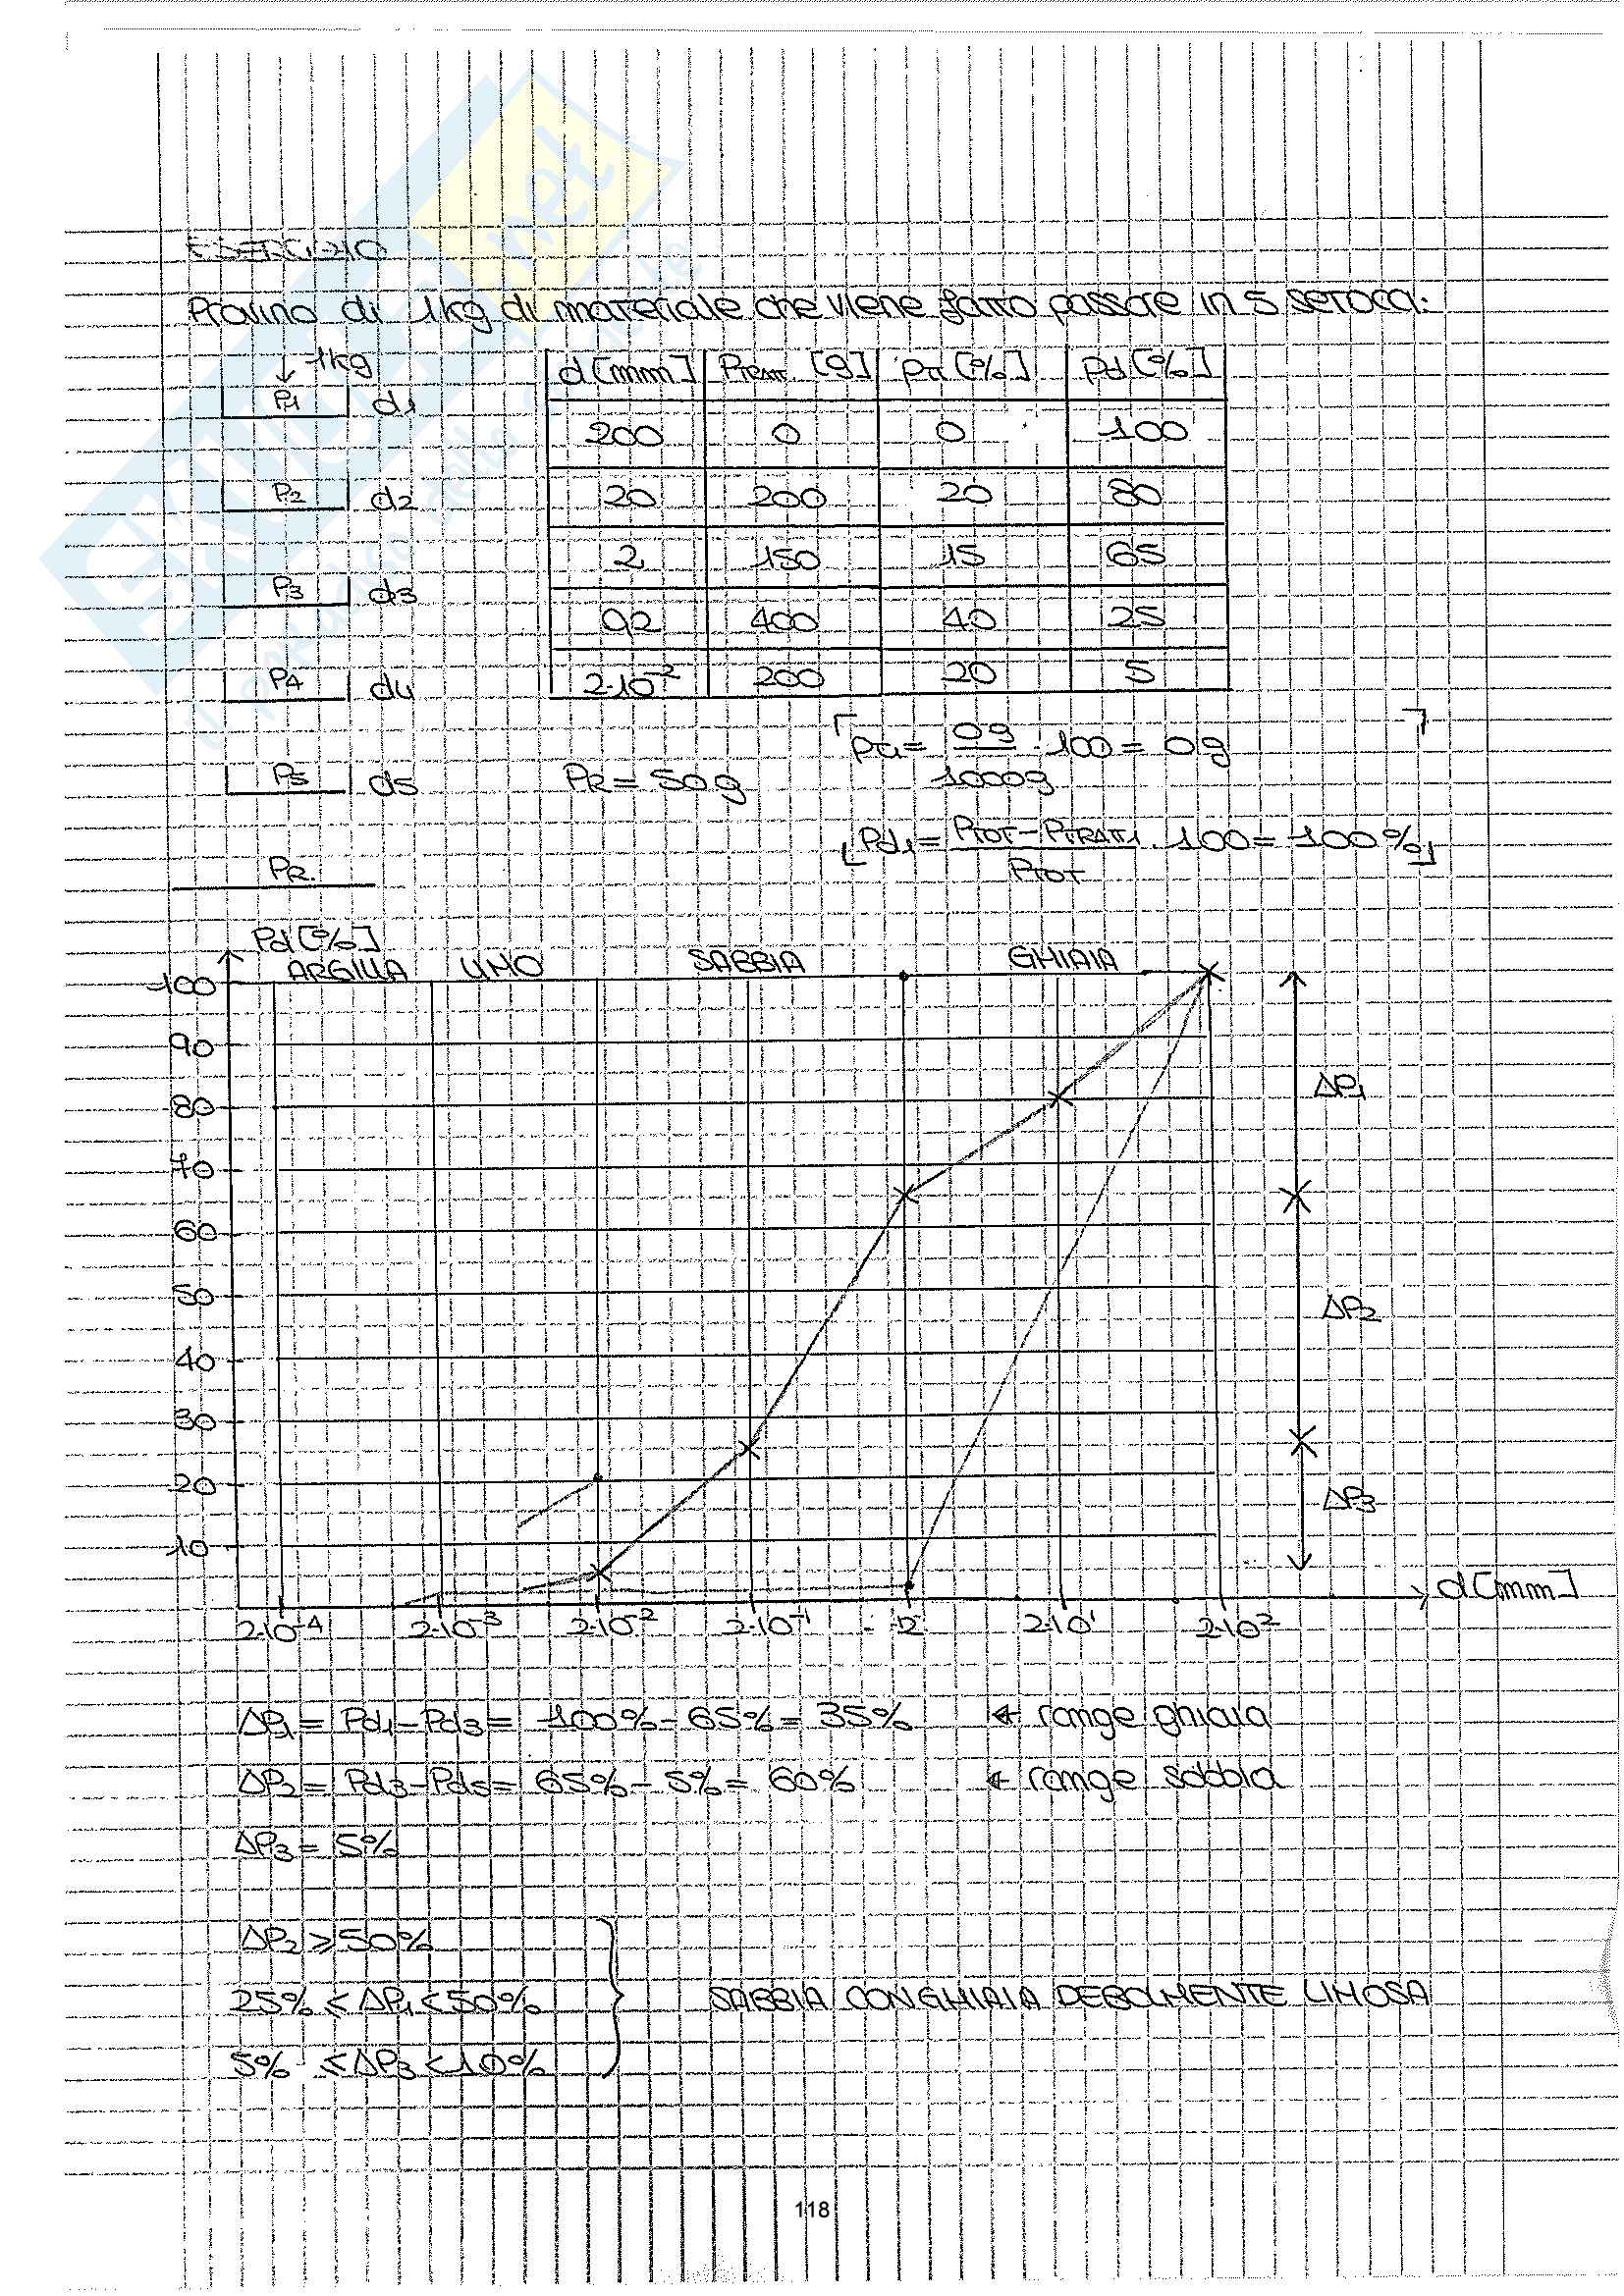 ESERCIZIO
Provino di 1kg di materiale che viene fatto passare in 5 setacci:
1kg
P1 d1
P2 d2
P3 d3
P4 d4
P5 d5
PR
d [mm] PTRATT. [g] PTi [%] Pd [%]
200 0 0 100
20 200 20 80
2 150 15 65
0,2 400 40 25
2·10⁻² 200 20 5
PR = 50g
= 0g / 1000g · 100 = 0g
Pd1 = PTOT - PTRATT1 / PTOT · 100 = 100%
Pd [%]
ARGILLA LIMO SABBIA GHIAIA
100
90
80
70
60
50
40
30
20
10
ΔP1
ΔP2
ΔP3
d [mm]
2·10⁻⁴ 2·10⁻³ 2·10⁻² 2·10⁻¹ 2 2·10¹ 2·10²
ΔP1 = Pd1 - Pd3 = 100% - 65% = 35% ← range ghiaia
ΔP2 = Pd3 - Pd5 = 65% - 5% = 60% ← range sabbia
ΔP3 = 5%
ΔP2 ≥ 50%
25% < ΔP1 < 50% SABBIA CON GHIAIA DEBOLMENTE LIMOSA
5% ≤ ΔP3 < 10%
118